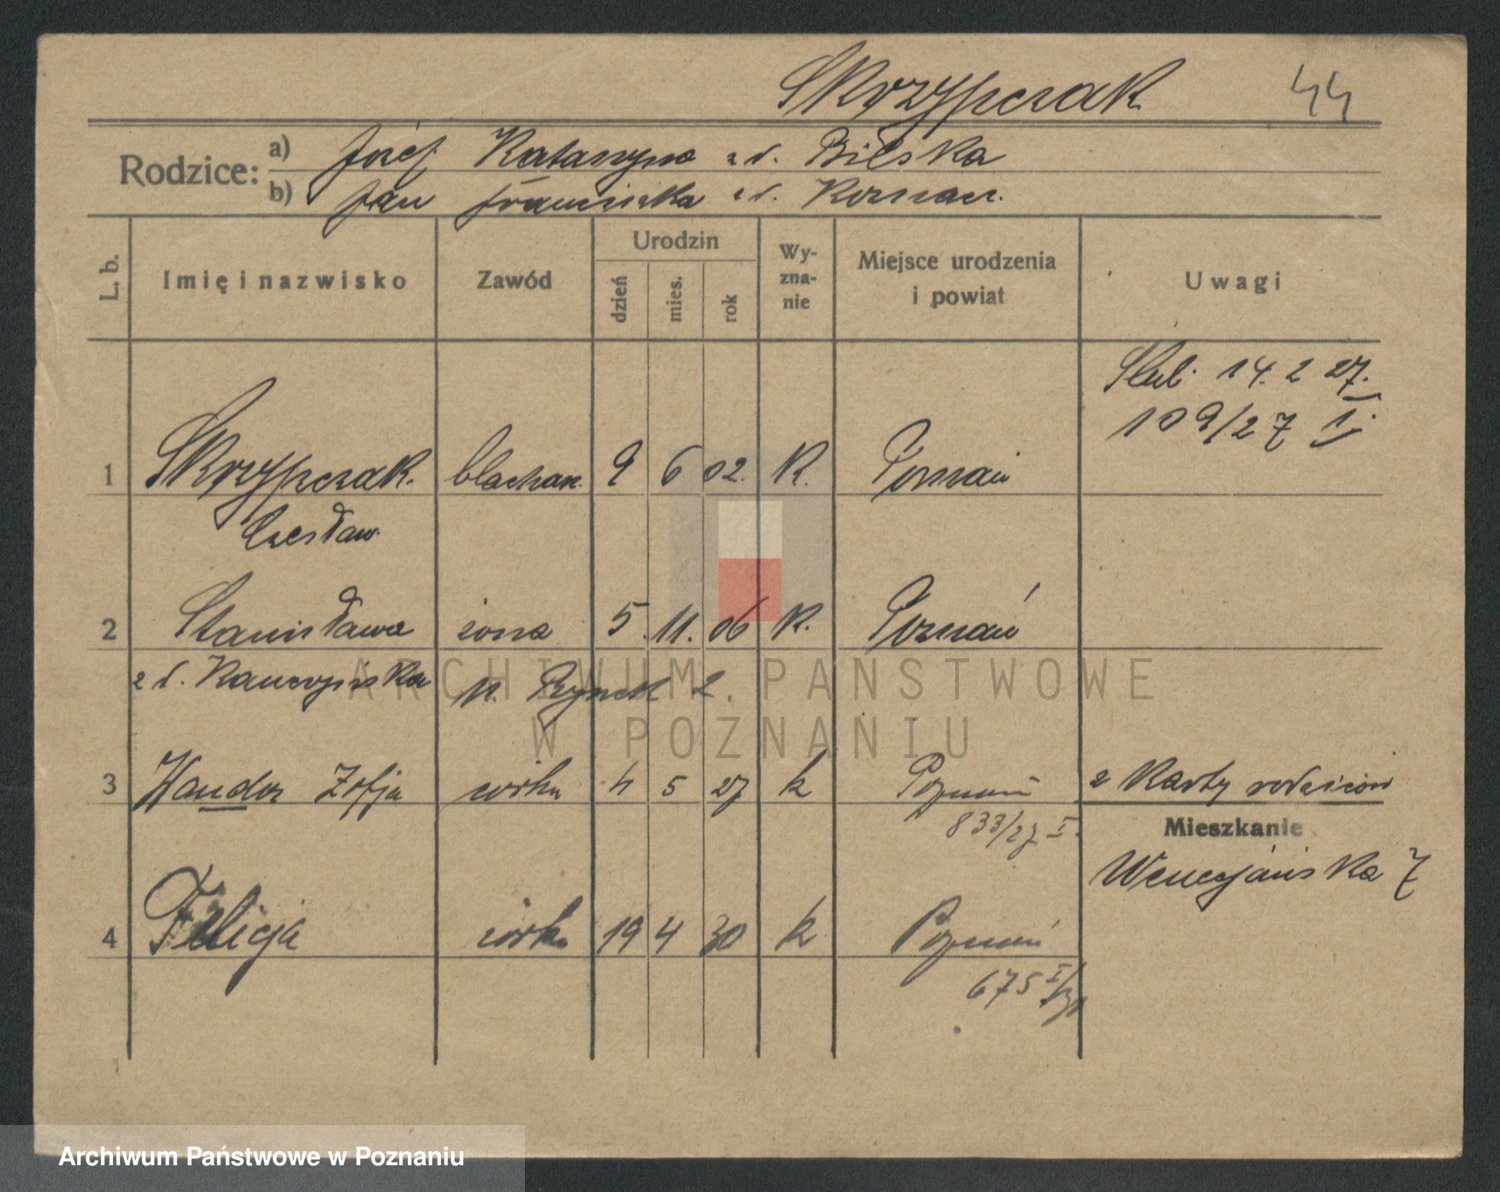 Skrzypczak 44
Rodzice: a) Józef Katarzyna z d. Bilska
b) Jan Franciszka z d.
L. b. Imię i nazwisko Zawód Urodzin dzień mies. rok Wy-zna-nie Miejsce urodzenia i powiat Uwagi
Ślub. 14. 2 27.
109/27 I.
1 Skrzypczak. blachar. 9 6 02. K. Poznań
Czesław
2 Stanisława żona 5. 11. 06 K. Poznań
z d. N. Rynek 2.
ARCHIWUM PAŃSTWOWE
W POZNANIU
3 Wanda Zofja córka 4 5 27 k Poznań z karty rodziców
833/27 I.
Mieszkanie
Wenecjańska 7
4 Felicja córka 19 4 30 k Poznań
675 I/30
Archiwum Państwowe w Poznaniu